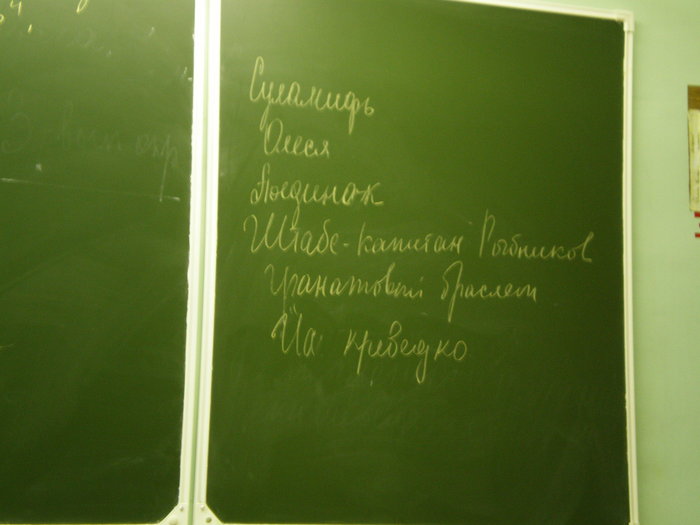 Суламифь
Олеся
Поединок
Штабс-капитан Рыбников
Гранатовый браслет
Йа креведко